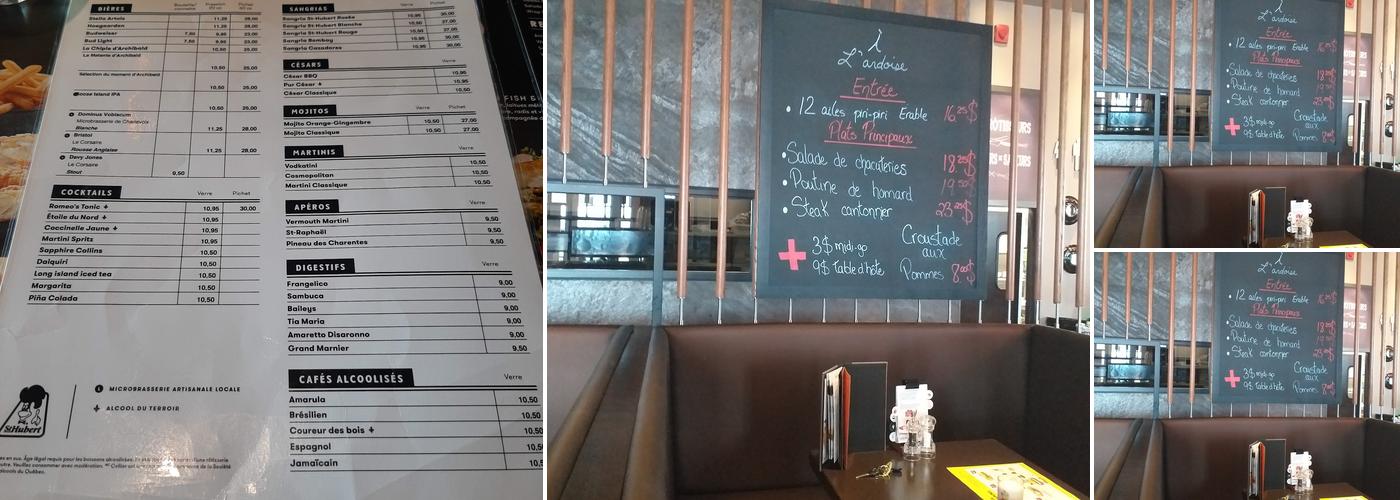 BIÈRES
Stella Artois 11,25 28,00
Hoegaarden 11,25 28,00
Budweiser 7,50 9,95 23,00
Bud Light 7,50 9,95 23,00
La Chipie d'Archibald 10,50 25,00
La Matante d'Archibald
10,50 25,00
Sélection du moment d'Archibald
10,50 25,00
Goose Island IPA
10,50 25,00
Dominus Vobiscum
Microbrasserie de Charlevoix
Blanche 11,25 28,00
Bristol
Le Corsaire
Rousse Anglaise 11,25 28,00
Davy Jones
Le Corsaire
Stout 9,50
COCKTAILS Verre Pichet
Romeo's Tonic + 10,95 30,00
Étoile du Nord + 10,95
Coccinelle Jaune + 10,95
Martini Spritz 10,95
Sapphire Collins 10,50
Daiquiri 10,50
Long island iced tea 10,50
Margarita 10,50
Piña Colada 10,50
MICROBRASSERIE ARTISANALE LOCALE
+ ALCOOL DU TERROIR
St-Hubert
SANGRIAS Verre Pichet
Sangria St-Hubert Rosée 10,95 30,00
Sangria St-Hubert Blanche 10,50 27,00
Sangria St-Hubert Rouge 10,50 27,00
Sangria Bombay 10,95 30,00
Sangria Cazadores 10,95 30,00
CÉSARS Verre
César BBQ 10,95
Pur César + 10,95
César Classique 10,50
MOJITOS Verre Pichet
Mojito Orange-Gingembre 10,50 27,00
Mojito Classique 10,50 27,00
MARTINIS Verre
Vodkatini 10,50
Cosmopolitan 10,50
Martini Classique 10,50
APÉROS Verre
Vermouth Martini 9,50
St-Raphaël 9,50
Pineau des Charentes 9,50
DIGESTIFS Verre
Frangelico 9,00
Sambuca 9,00
Baileys 9,00
Tia Maria 9,00
Amaretto Disaronno 9,00
Grand Marnier 9,50
CAFÉS ALCOOLISÉS Verre
Amarula 10,50
Brésilien 10,50
Coureur des bois + 10,50
Espagnol 10,50
Jamaïcain 10,5
À
L'ardoise
Entrée
• 12 ailes piri-piri Érable 16.25$
Plats Principaux
• Salade de chacuteries 18.25$
• Poutine de homard 19.50$
• Steak cantonner 23.25$
+ 3$ midi-go
9$ Table d'hôte
Croustade
aux
Pommes 8.00$
À
L'ardoise
Entrée
• 12 ailes piri-piri Érable 16.25$
Plats Principaux
• Salade de chacuteries 18.25$
• Poutine de homard 19.50$
• Steak cantonner 23.25$
+ 3$ midi-go
9$ Table d'hôte
Croustade
aux
Pommes 8.00$
L'ardoise
Entrée
• 12 ailes piri-piri Érable 16.25$
Plats Principaux
• Salade de chacuteries 18.25$
• Poutine de homard 19.50$
• Steak cantonner 23.25$
+ 3$ midi-go
9$ Table d'hôte
Croustade
aux
Pommes 8.00$